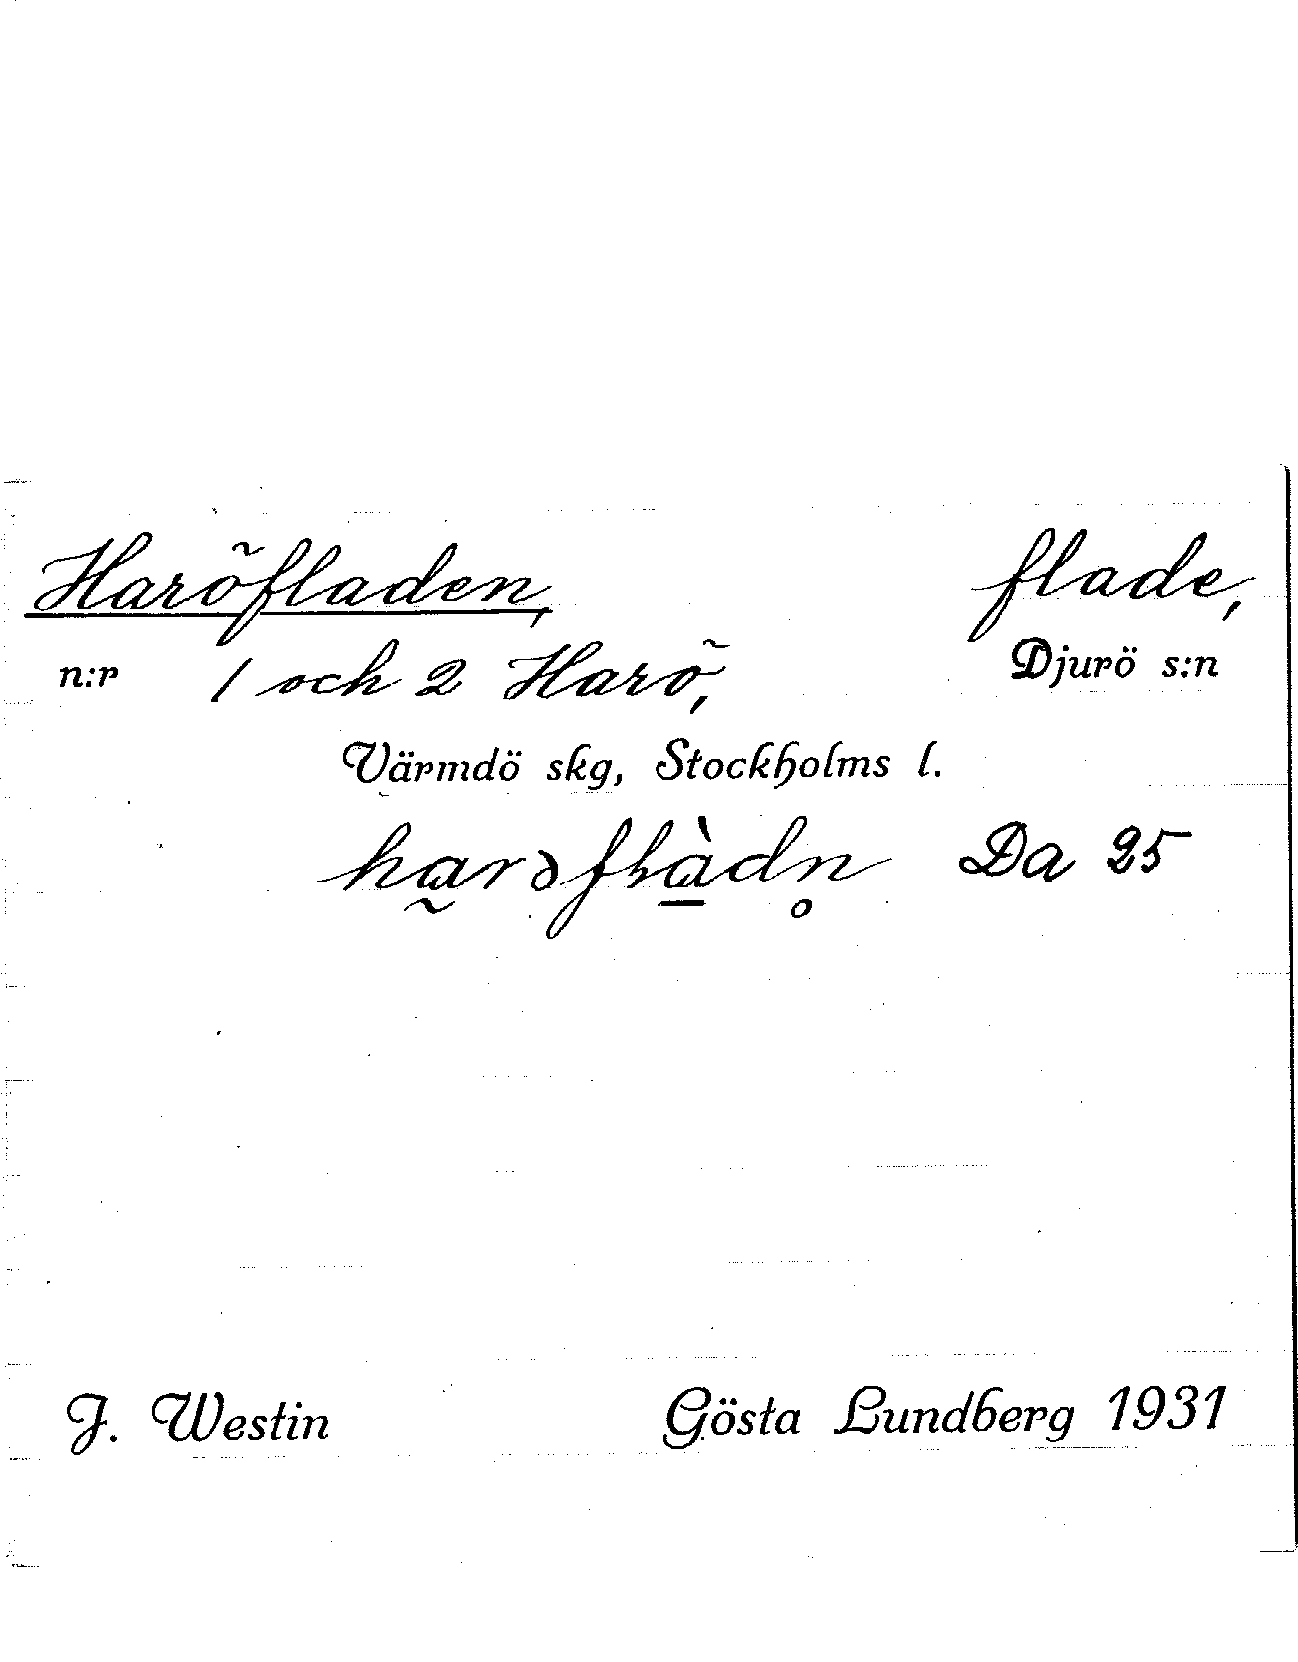 Haröfladen, flade,
n:r 1 och 2 Harö, Djurö s:n
Värmdö skg, Stockholms l.
ha̰rəfɫà̱dn̥ Da 25
J. Westin Gösta Lundberg 1931